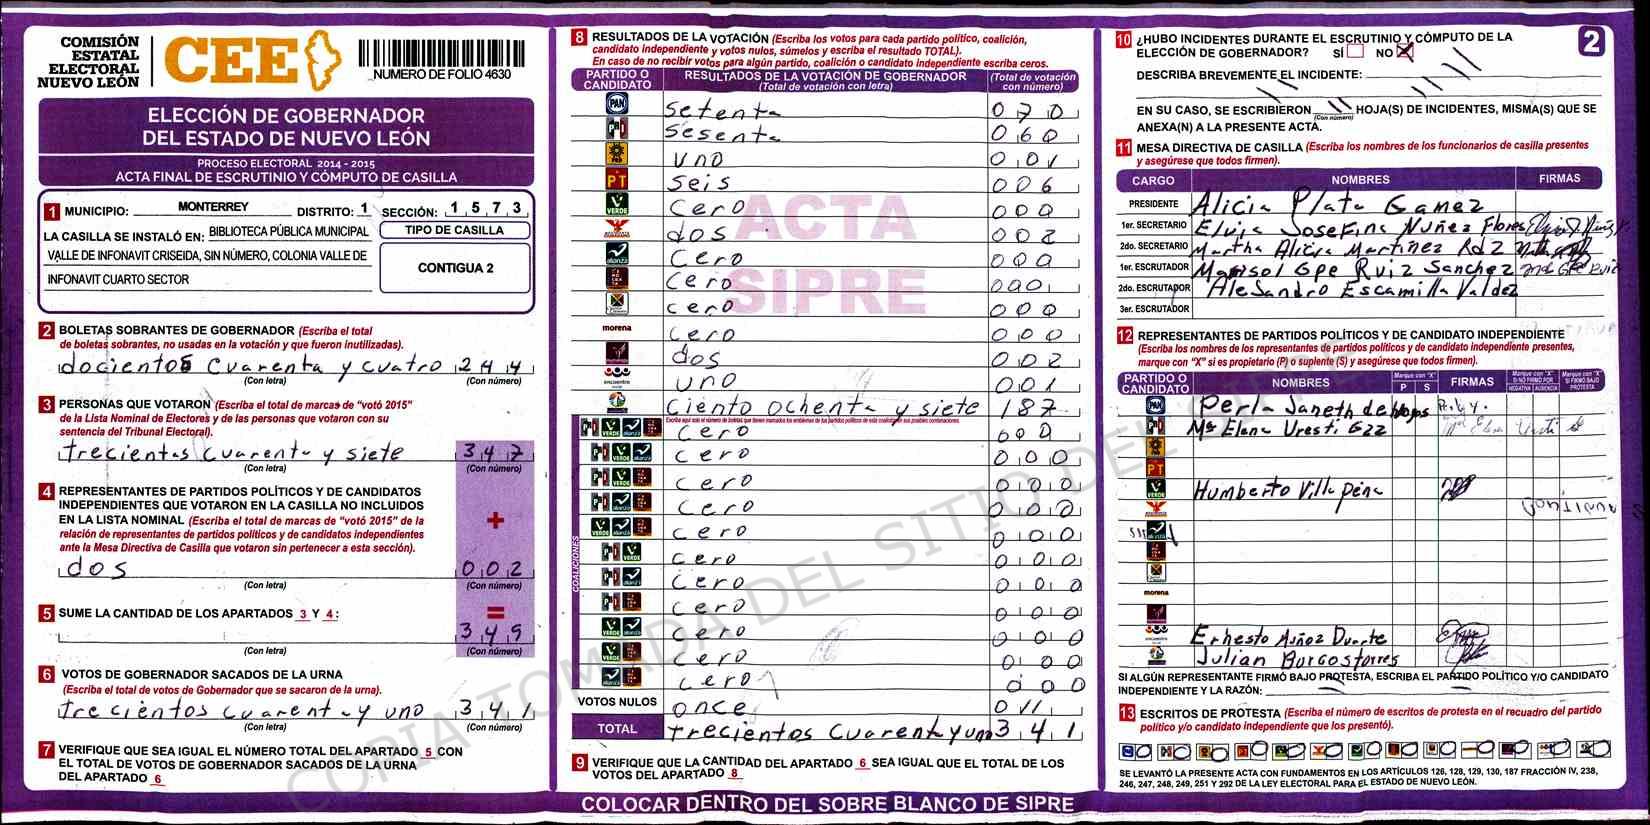 COMISIÓN
ESTATAL
ELECTORAL
NUEVO LEÓN
CEE
NUMERO DE FOLIO 4630
ELECCIÓN DE GOBERNADOR
DEL ESTADO DE NUEVO LEÓN
PROCESO ELECTORAL 2014 - 2015
ACTA FINAL DE ESCRUTINIO Y CÓMPUTO DE CASILLA
1 MUNICIPIO: MONTERREY DISTRITO: 1 SECCIÓN: 1 5 7 3
LA CASILLA SE INSTALÓ EN: BIBLIOTECA PÚBLICA MUNICIPAL
VALLE DE INFONAVIT CRISEIDA, SIN NÚMERO, COLONIA VALLE DE
INFONAVIT CUARTO SECTOR
TIPO DE CASILLA
CONTIGUA 2
2 BOLETAS SOBRANTES DE GOBERNADOR (Escriba el total
de boletas sobrantes, no usadas en la votación y que fueron inutilizadas).
docientos cuarenta y cuatro 2 4 4
(Con letra) (Con número)
3 PERSONAS QUE VOTARON (Escriba el total de marcas de “votó 2015”
de la Lista Nominal de Electores y de las personas que votaron con su
sentencia del Tribunal Electoral).
trecientas cuarenta y siete 3 4 7
(Con letra) (Con número)
4 REPRESENTANTES DE PARTIDOS POLÍTICOS Y DE CANDIDATOS
INDEPENDIENTES QUE VOTARON EN LA CASILLA NO INCLUIDOS
EN LA LISTA NOMINAL (Escriba el total de marcas de “votó 2015” de la
relación de representantes de partidos políticos y de candidatos independientes
ante la Mesa Directiva de Casilla que votaron sin pertenecer a esta sección).
+
dos 0 0 2
(Con letra) (Con número)
5 SUME LA CANTIDAD DE LOS APARTADOS 3 Y 4: =
3 4 9
(Con letra) (Con número)
6 VOTOS DE GOBERNADOR SACADOS DE LA URNA
(Escriba el total de votos de Gobernador que se sacaron de la urna).
trecientos cuarenta y uno 3 4 1
(Con letra) (Con número)
7 VERIFIQUE QUE SEA IGUAL EL NÚMERO TOTAL DEL APARTADO 5 CON
EL TOTAL DE VOTOS DE GOBERNADOR SACADOS DE LA URNA
DEL APARTADO 6
8 RESULTADOS DE LA VOTACIÓN (Escriba los votos para cada partido político, coalición,
candidato independiente y votos nulos, súmelos y escriba el resultado TOTAL).
En caso de no recibir votos para algún partido, coalición o candidato independiente escriba ceros.
PARTIDO O CANDIDATO RESULTADOS DE LA VOTACIÓN DE GOBERNADOR (Total de votación con letra) (Total de votación con número)
PAN setenta 0 7 0
PRI sesenta 0 6 0
PRD uno 0 0 1
PT seis 0 0 6
VERDE cero 0 0 0
dos 0 0 2
alianza cero 0 0 0
cero 0 0 0
cero 0 0 0
morena cero 0 0 0
dos 0 0 2
encuentro social uno 0 0 1
ciento ochenta y siete 1 8 7
Escriba aquí solo el número de boletas que tienen marcados los emblemas de los partidos políticos de esta coalición en sus posibles combinaciones.
COALICIONES
PRI VERDE alianza cero 0 0 0
PRI VERDE alianza cero 0 0 0
PRI VERDE cero 0 0 0
PRI alianza cero 0 0 0
VERDE alianza cero 0 0 0
PRI VERDE cero 0 0 0
PRI alianza cero 0 0 0
PRI cero 0 0 0
VERDE alianza cero 0 0 0
VERDE cero 0 0 0
alianza cero 0 0 0
VOTOS NULOS once 0 1 1
TOTAL trecientos cuarenta y uno 3 4 1
9 VERIFIQUE QUE LA CANTIDAD DEL APARTADO 6 SEA IGUAL QUE EL TOTAL DE LOS
VOTOS DEL APARTADO 8
ACTA
SIPRE
COPIA TOMADA DEL SITIO DEL SIPRE
COLOCAR DENTRO DEL SOBRE BLANCO DE SIPRE
2
10 ¿HUBO INCIDENTES DURANTE EL ESCRUTINIO Y CÓMPUTO DE LA
ELECCIÓN DE GOBERNADOR? SÍ NO X
DESCRIBA BREVEMENTE EL INCIDENTE:
EN SU CASO, SE ESCRIBIERON HOJA(S) DE INCIDENTES, MISMA(S) QUE SE
(Con número)
ANEXA(N) A LA PRESENTE ACTA.
11 MESA DIRECTIVA DE CASILLA (Escriba los nombres de los funcionarios de casilla presentes
y asegúrese que todos firmen).
CARGO NOMBRES FIRMAS
PRESIDENTE Alicia Plata Gamez
1er. SECRETARIO Elvira Josefina Nuñez Flores
2do. SECRETARIO Martha Alicia Martinez Rdz
1er. ESCRUTADOR Marisol Gpe Ruiz Sanchez
2do. ESCRUTADOR Alejandro Escamilla Valdez
3er. ESCRUTADOR
12 REPRESENTANTES DE PARTIDOS POLÍTICOS Y DE CANDIDATO INDEPENDIENTE
(Escriba los nombres de los representantes de partidos políticos y de candidato independiente presentes,
marque con “X” si es propietario (P) o suplente (S) y asegúrese que todos firmen).
PARTIDO O CANDIDATO NOMBRES Marque con “X” P S FIRMAS Marque con “X” SI NO FIRMÓ POR NEGATIVA AUSENCIA Marque con “X” SI FIRMÓ BAJO PROTESTA
PAN Perla Janeth de
PRI Ma Elena Uresti Gzz
PRD
PT
VERDE Humberto Villa Peña
morena
Ernesto Muñoz Duarte
Julian Burgos torres
SI ALGÚN REPRESENTANTE FIRMÓ BAJO PROTESTA, ESCRIBA EL PARTIDO POLÍTICO Y/O CANDIDATO
INDEPENDIENTE Y LA RAZÓN:
13 ESCRITOS DE PROTESTA (Escriba el número de escritos de protesta en el recuadro del partido
político y/o candidato independiente que los presentó).
SE LEVANTÓ LA PRESENTE ACTA CON FUNDAMENTOS EN LOS ARTÍCULOS 126, 128, 129, 130, 187 FRACCIÓN IV, 238,
246, 247, 248, 249, 251 Y 292 DE LA LEY ELECTORAL PARA EL ESTADO DE NUEVO LEÓN.